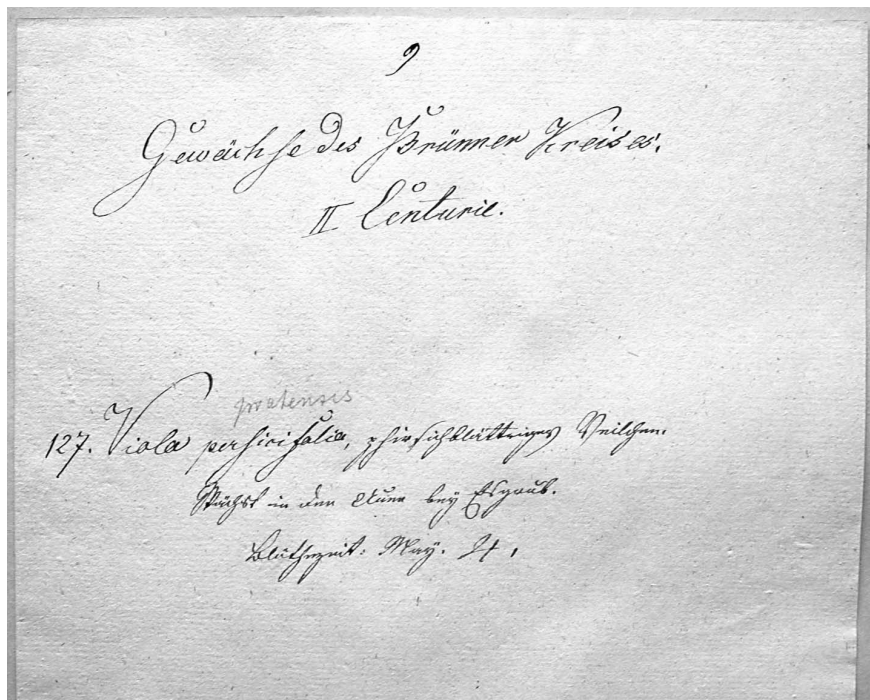 9
Gewächse des Brünner Kreises.
II Centurie.
pratensis
127. Viola persicifolia, phirsichblättriges Veilchen.
Wächst in den Auen bey
Blüthezeit: May. ♃,